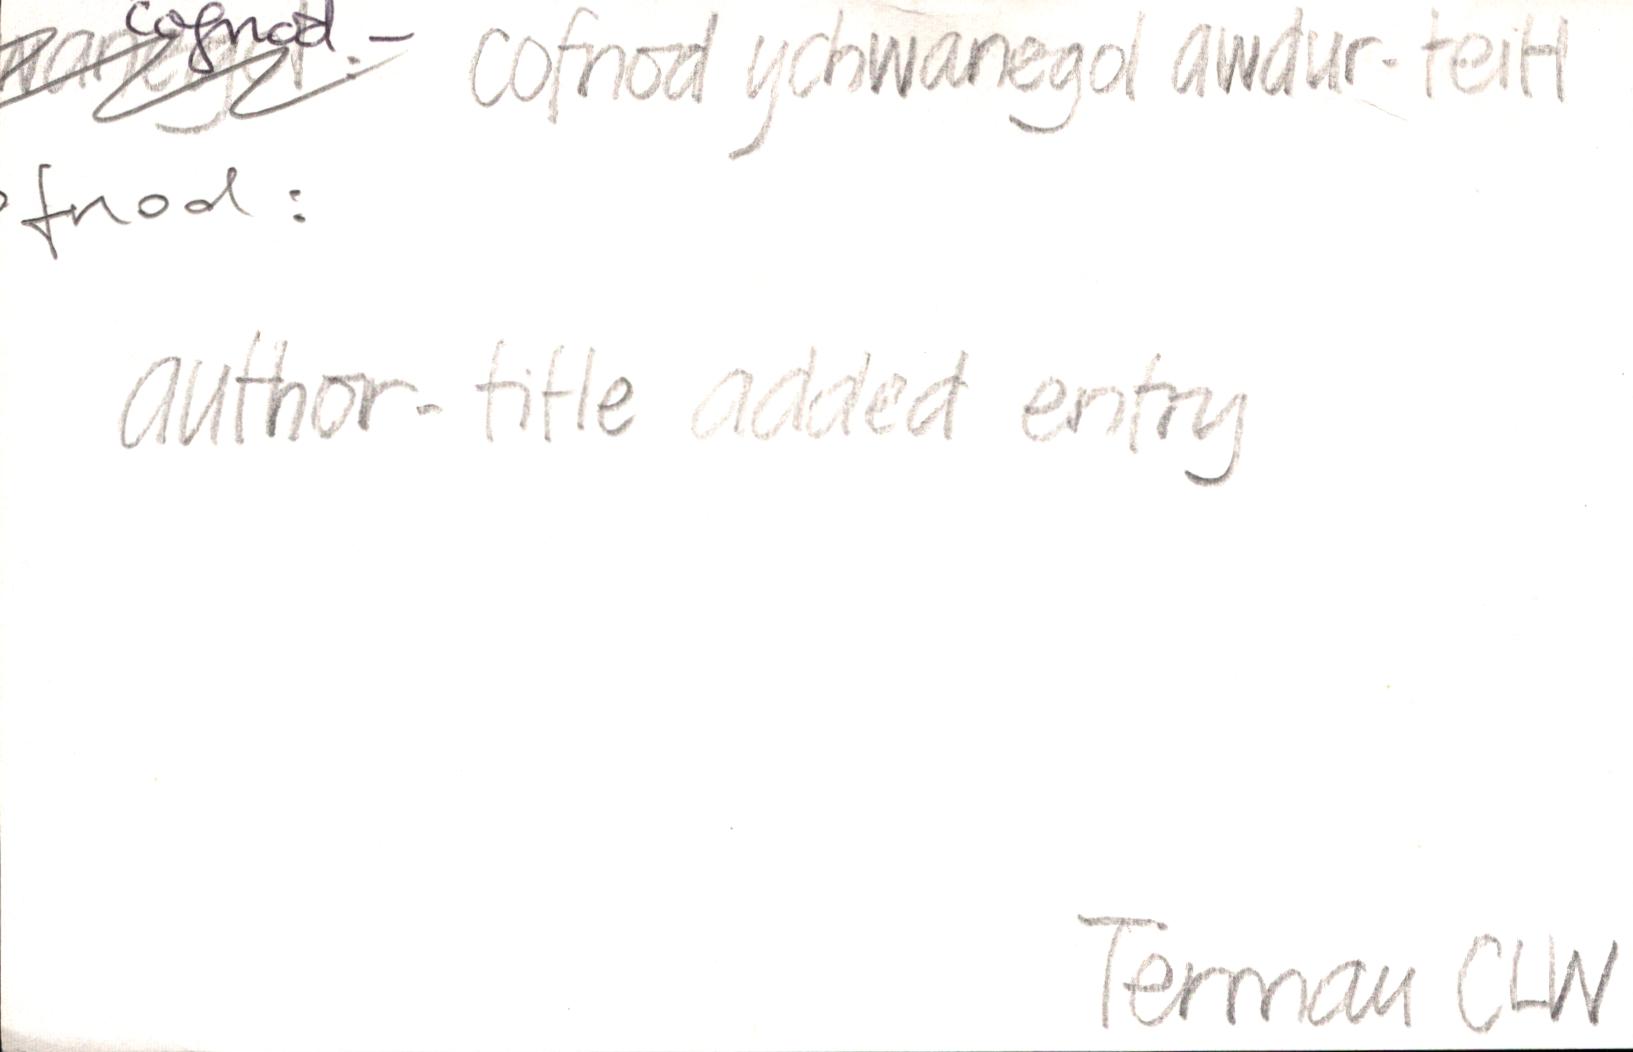 cofnod - cofnod ychwanegol awdur-teitl
ofnod:
author-title added entry
Termau CLW